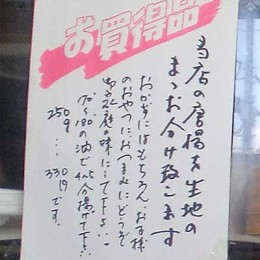 お買得品
当店の唐揚を生地の
まゝお分け致します
おかずにはもちろん、お子様
のおやつにおつまみにどうぞ
御家庭の味にして下さい
170~180の油で4~5分揚げて下さい
250g…330円です。